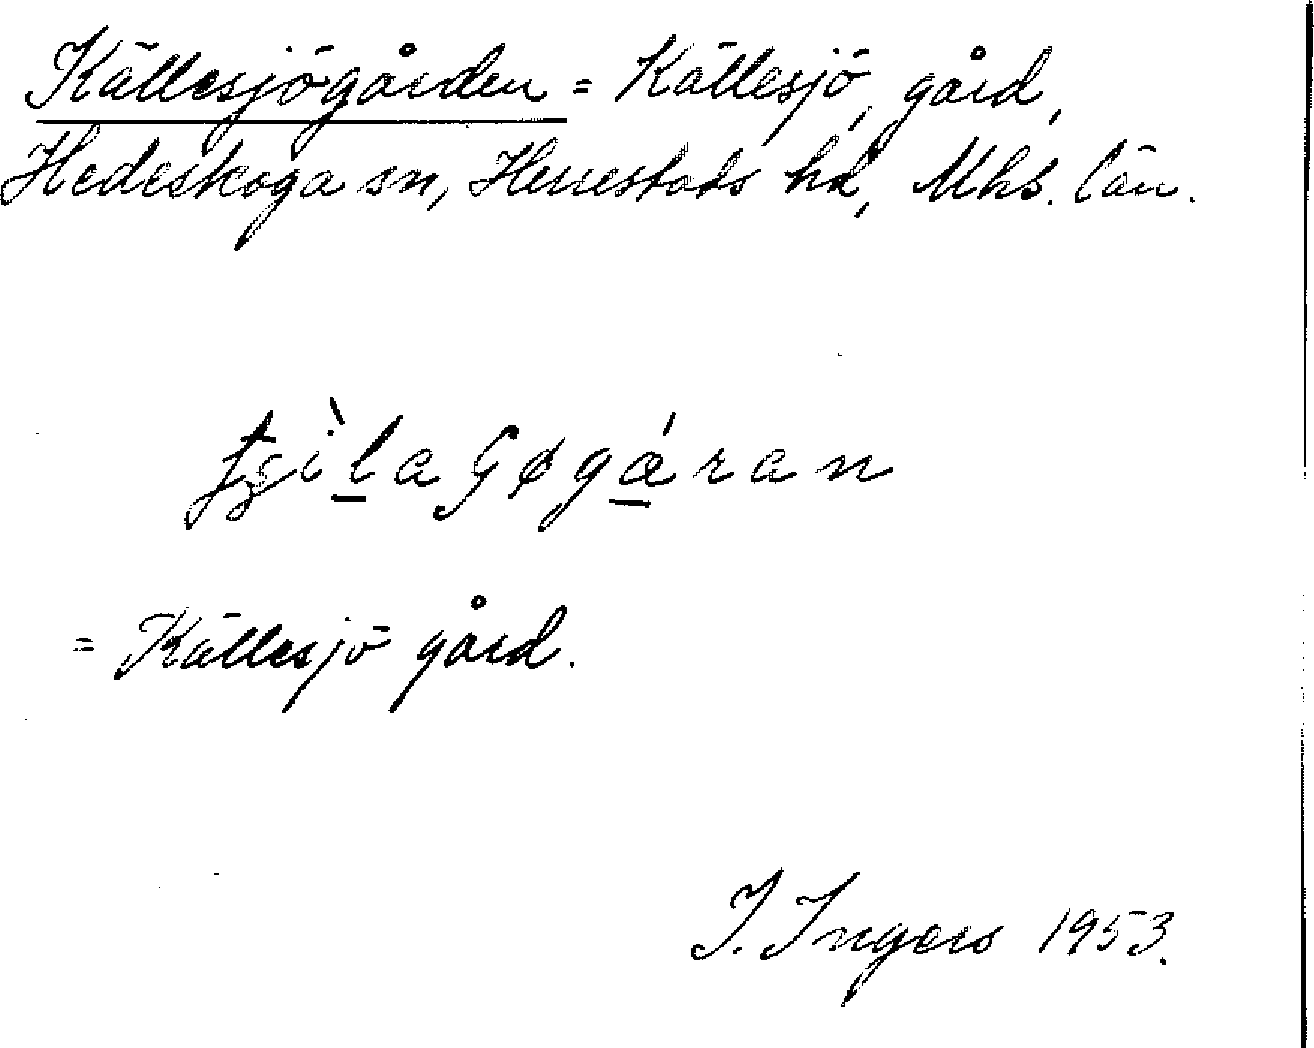 Källesjögården = Källesjö, gård,
Hedeskoga sn, Herrestads hd, Mhs. län.
= Källesjö gård.
I. Ingers 1953.